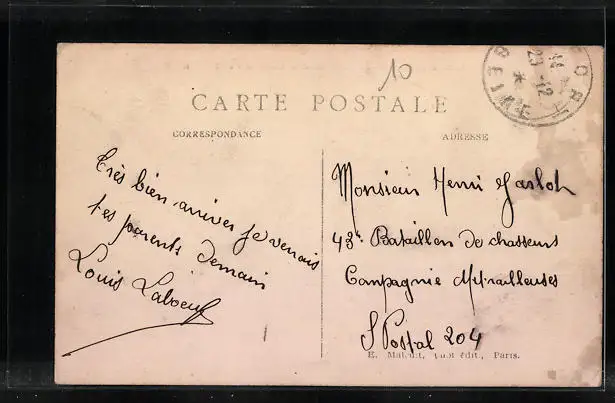 10
CARTE POSTALE
CORRESPONDANCE
ADRESSE
29 -12
Très bien arriver je verrais
tes parents demain
Louis Laboeuf
Monsieur Henri
43e Bataillon de chasseurs
Compagnie Mitrailleuses
S Postal 204
E. édit., Paris.